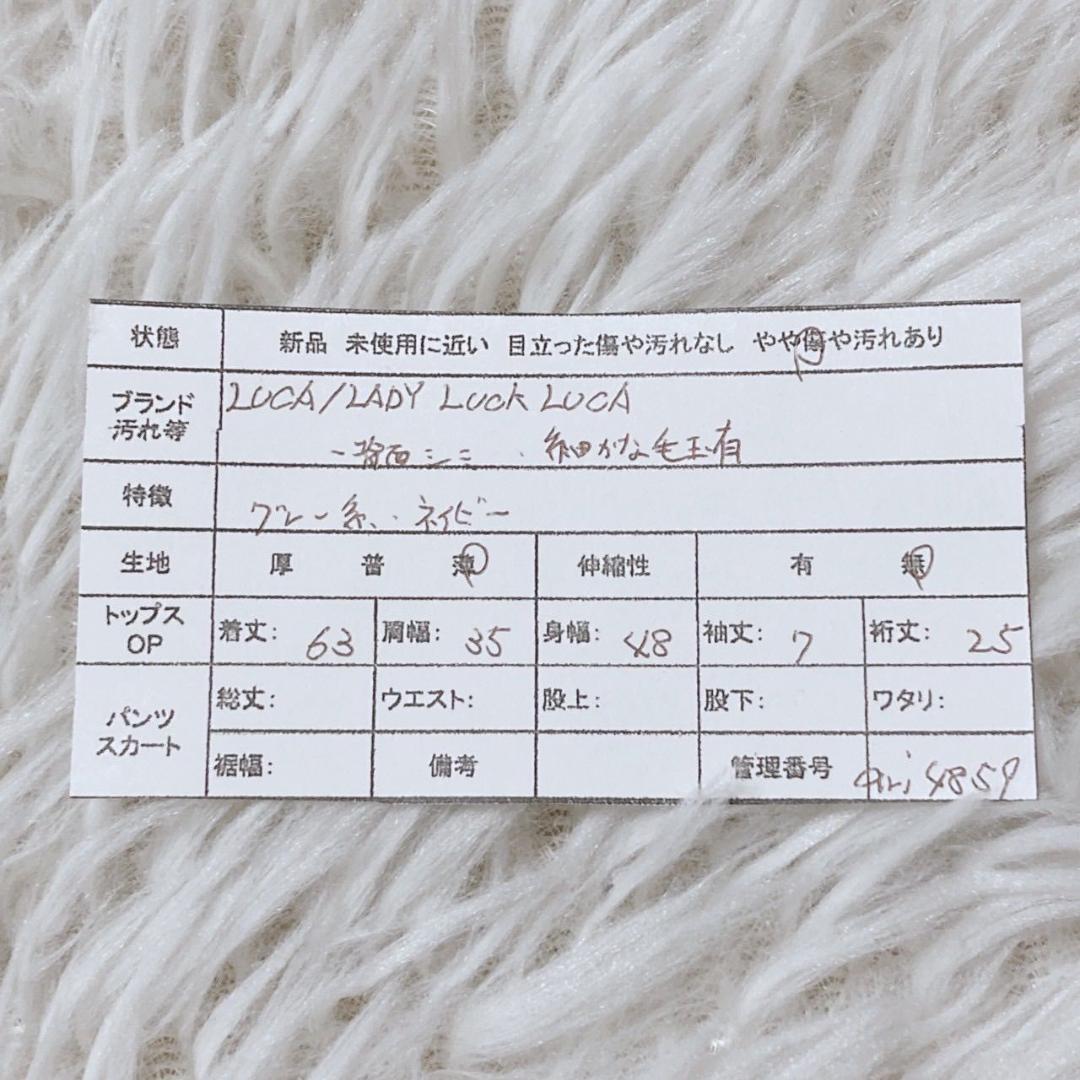 状態 新品 未使用に近い 目立った傷や汚れなし やや傷や汚れあり
ブランド 汚れ等 LUCA/LADY LUCK LUCA
背面シミ 細かな毛玉有
特徴 グレー系、ネイビー
生地 厚 普 薄 伸縮性 有 無
トップス OP 着丈: 63 肩幅: 35 身幅: 48 袖丈: 7 裄丈: 25
パンツ スカート 総丈: ウエスト: 股上: 股下: ワタリ:
裾幅: 備考 管理番号 4859